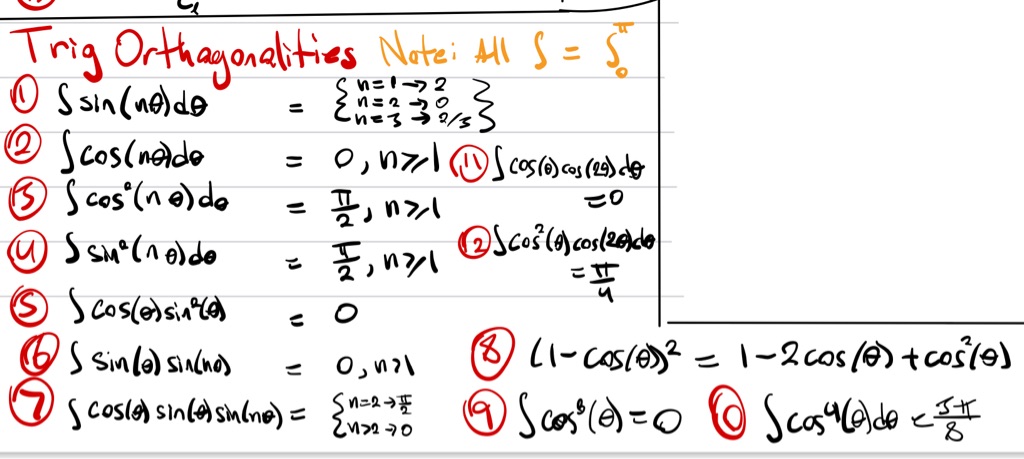 Trig Orthagonalities Note: All ∫ = ∫₀^π
① ∫ sin(nθ)dθ = {n=1 → 2
n=2 → 0
n=3 → 2/3}
② ∫ cos(nθ)dθ = 0, n≥1
③ ∫ cos²(nθ)dθ = π/2, n≥1
④ ∫ sin²(nθ)dθ = π/2, n≥1
⑤ ∫ cos(θ)sin²(θ) = 0
⑥ ∫ sin(θ) sin(nθ) = 0, n>1
⑦ ∫ cos(θ) sin(θ) sin(nθ) = {n=2 → π/2
n>2 → 0
⑪ ∫ cos(θ) cos(2θ) dθ
= 0
⑫ ∫ cos²(θ) cos(2θ) dθ
= π/4
⑧ (1-cos(θ))² = 1-2cos(θ) + cos²(θ)
⑨ ∫ cos³(θ) = 0
⑩ ∫ cos⁴(θ)dθ = 3π/8